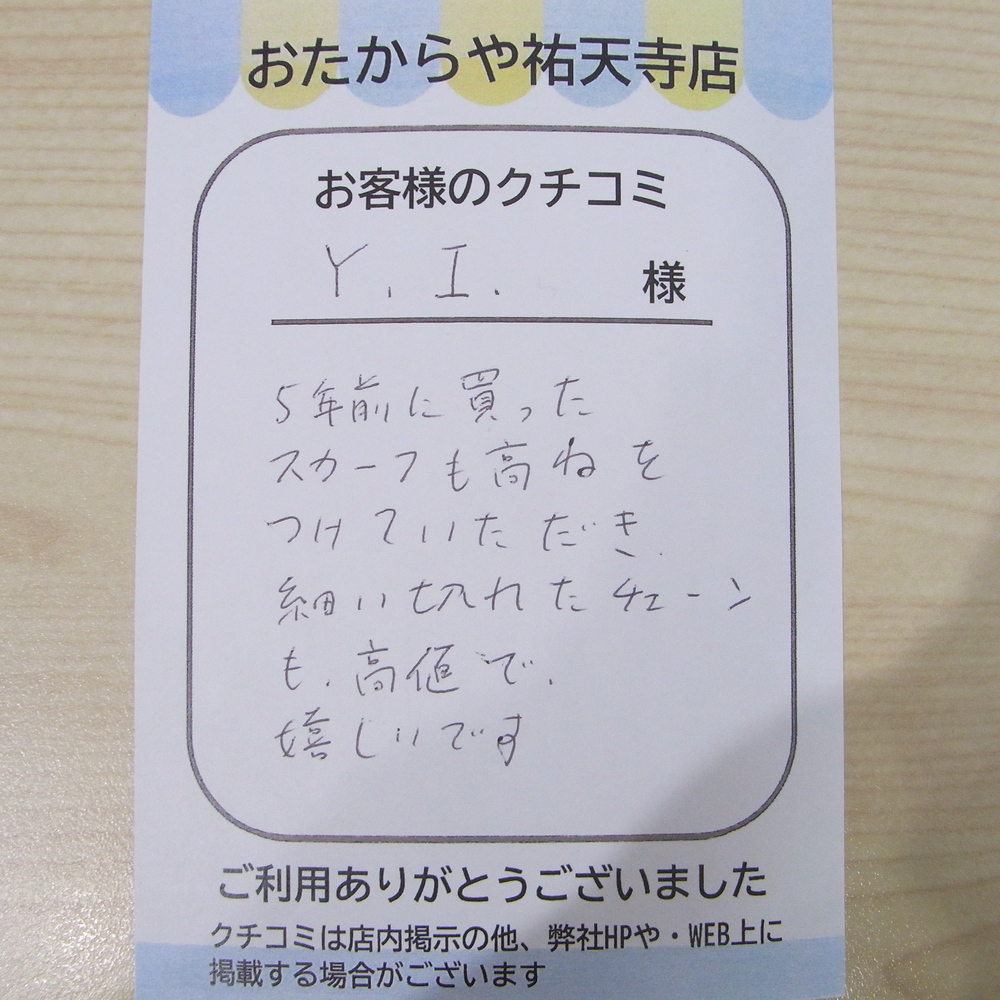 おたからや祐天寺店
お客様のクチコミ
Y. I. 様
5年前に買った
スカーフも高ねを
つけていただき、
細い切れたチェーン
も、高値で、
嬉しいです
ご利用ありがとうございました
クチコミは店内掲示の他、弊社HPや・WEB上に
掲載する場合がございます